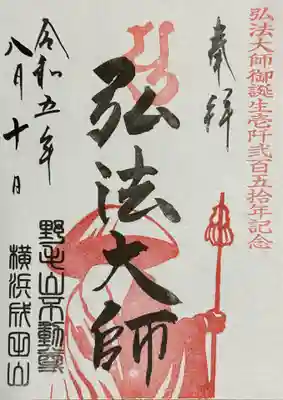 弘法大師御誕生壱阡弐百五拾年記念
奉拝
弘法大師
令和五年
八月十日
野毛山不動尊
横浜成田山